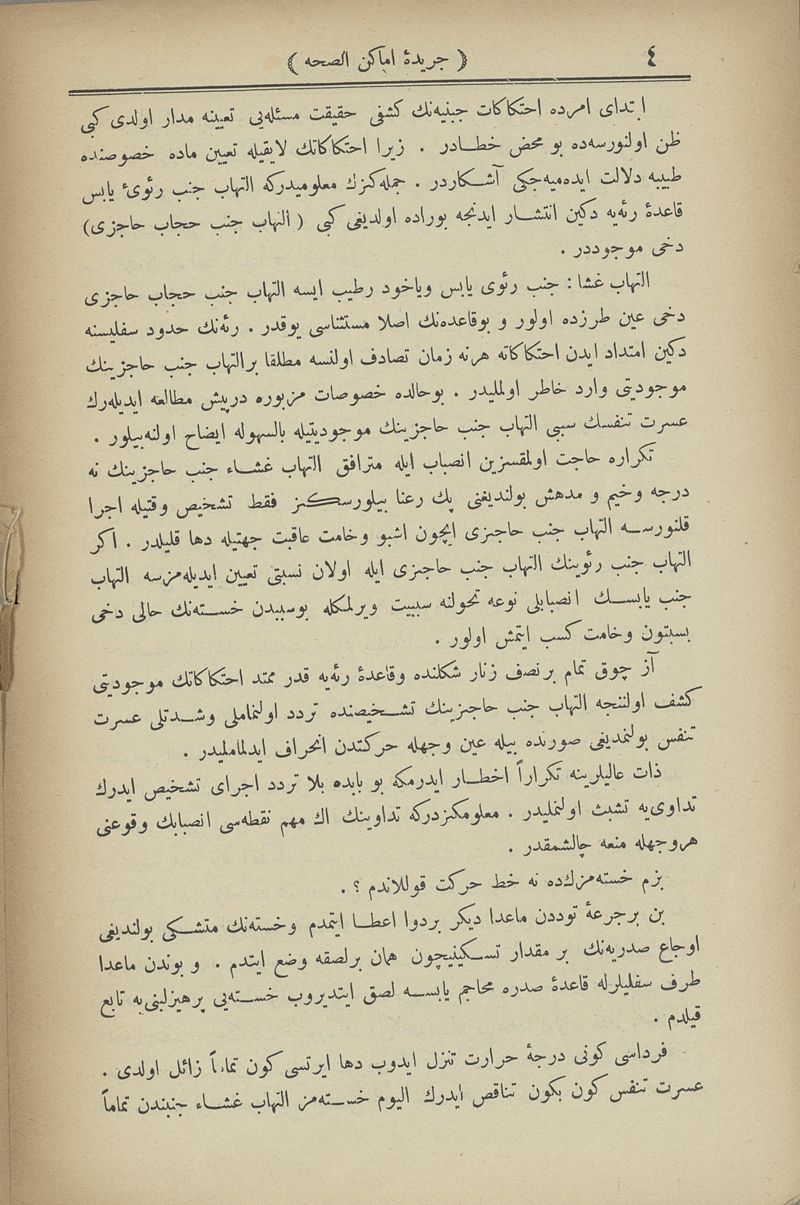 ٤
﴿ جريدۀ اماكن الصحه ﴾
ابتداى امرده احتكاكات جبنيه‌نك كشفى حقيقت مسئله‌يى تعيينه مدار اولدى كبى
ظن اولنورسه‌ده بو محض خطادر . زيرا احتكاكاتك لايقيله تعيين ماده خصوصنده
طبيبه دلالت ايده‌ميه‌جكى آشكاردر . جمله‌كزك معلوميدركه التهاب جنب رئوىٔ يابس
قاعدۀ رئه‌يه دكين انتشار ايدنجه بوراده اولديغى كبى ( التهاب جنب حجاب حاجزى )
دخى موجوددر .
التهاب غشا : جنب رئوى يابس وياخود رطيب ايسه التهاب جنب حجاب حاجزى
دخى عين طرزده اولور و بوقاعده‌نك اصلا مستثناسى يوقدر . رئه‌نك حدود سفليسنه
دكين امتداد ايدن احتكاكاته هرنه زمان تصادف اولنسه مطلقا برالتهاب جنب حاجزينك
موجوديتى وارد خاطر اولمليدر . بوحالده خصوصات مزبوره درپيش مطالعه ايديله‌رك
عسرت تنفسك سببى التهاب جنب حاجزينك موجوديتيله بالسهوله ايضاح اولنه‌بيلور .
تكراره حاجت اولمقسزين انصباب ايله مترافق التهاب غشاء جنب حاجزينك نه
درجه وخيم و مدهش بولنديغنى پك رعنا بيلورسكز فقط تشخيص وقتيله اجرا
قلنورسه التهاب جنب حاجزى ايچون اشبو وخامت عاقبت جهتيله دها قليلدر . اكر
التهاب جنب رئوينك التهاب جنب حاجزى ايله اولان نسبتى تعيين ايديله‌مزسه التهاب
جنب يابسك انصبابلى نوعه تحولنه سببيت ويرلمكله بوسببدن خسته‌نك حالى دخى
بسبتون وخامت كسب ايتمش اولور .
آز چوق تمام برنصف زنار شكلنده وقاعدۀ رئه‌يه قدر ممتد احتكاكاتك موجوديتى
كشف اولننجه التهاب جنب حاجزينك تشخيصنده تردد اولنماملى وشدتلى عسرت
تنفس بولنمديغى صورنده بيله عين وجهله حركتدن انحراف ايدلماملیدر .
ذات عاليلرينه تكراراً اخطار ايدرمكه بو بابده بلا تردد اجراى تشخيص ايدرك
تداوى‌يه تشبث اولنمليدر . معلومكزدركه تداوينك اك مهم نقطه‌سى انصبابك وقوعنى
هروجهله منعه چالشمقدر .
بزم خسته‌مزك‌ده نه خط حركت قوللاندم ؟ .
بن برجرعۀ توددن ماعدا ديكر بردوا اعطا ايتمدم وخسته‌نك متشكى بولنديغى
اوجاع صدريه‌نك بر مقدار تسكينيچون همان برلصقه وضع ايتدم . و بوندن ماعدا
طرف سفليلرله قاعدۀ صدره محاجم يابسه لصق ايتديروب خسته‌يى پرهيزلبنى‌يه تابع
قيلدم .
فرداسى كونى درجۀ حرارت تنزل ايدوب دها ايرتسى كون تماماً زائل اولدى .
عسرت تنفس كون بكون تناقص ايدرك اليوم خسته‌مز التهاب غشاء جنبندن تماماً